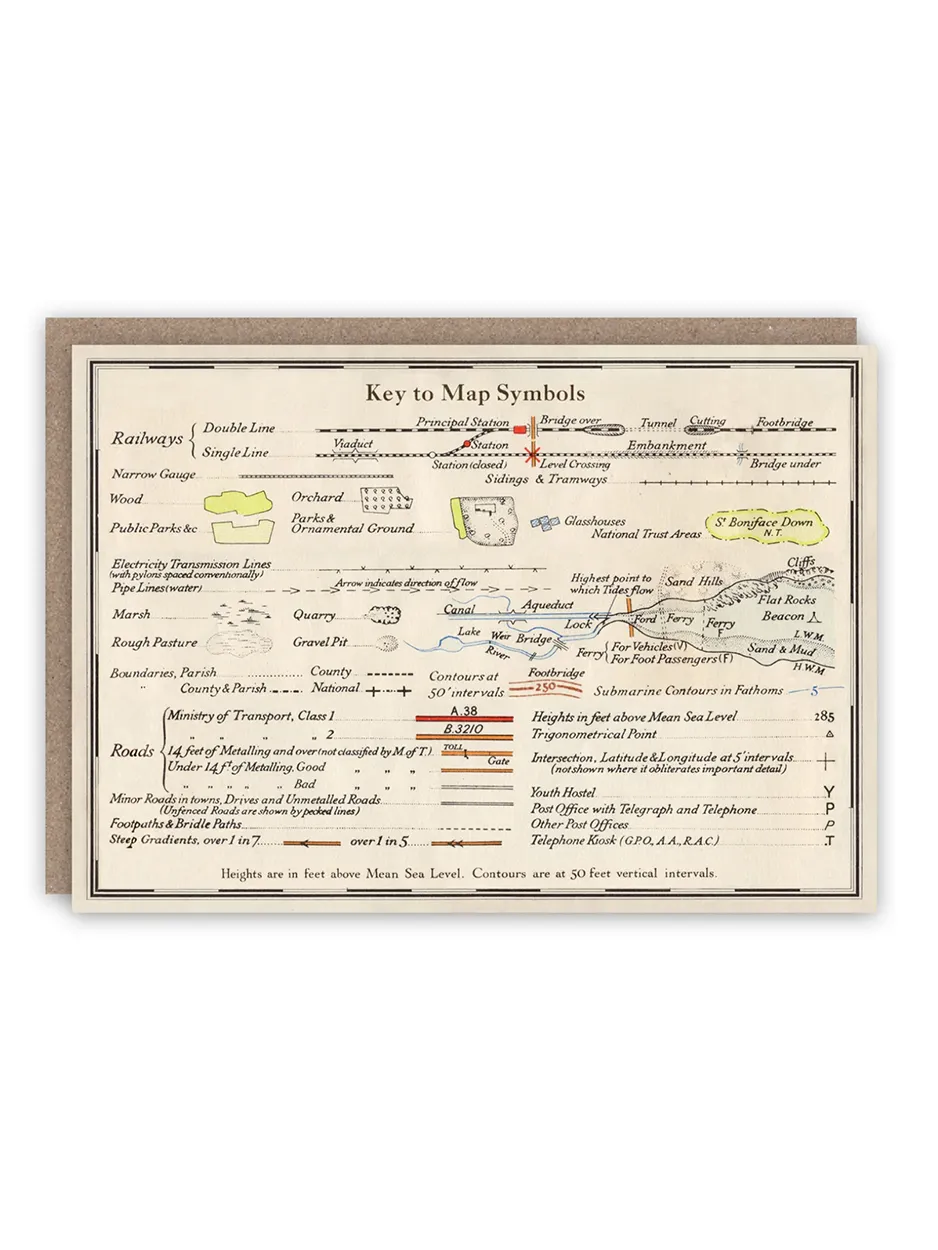 Key to Map Symbols
Railways { Double Line
Principal Station
Bridge over
Tunnel
Cutting
Footbridge
Single Line
Viaduct
Station
Station (closed)
Level Crossing
Embankment
Bridge under
Narrow Gauge
Sidings & Tramways
Wood
Orchard
Public Parks &c
Parks &
Ornamental Ground
Glasshouses
National Trust Areas
St Boniface Down
N.T.
Electricity Transmission Lines
(with pylons spaced conventionally)
Pipe Lines (water)
Arrow indicates direction of flow
Highest point to
which Tides flow
Sand Hills
Cliffs
Flat Rocks
Marsh
Quarry
Canal
Aqueduct
Lock
Ford
Ferry
Ferry
F
Beacon
L.W.M.
Rough Pasture
Gravel Pit
Lake
Weir
Bridge
River
Ferry { For Vehicles (V)
For Foot Passengers (F)
Sand & Mud
H.W.M
Boundaries, Parish
County
Contours at
50' intervals
Footbridge
250
" County & Parish
National
Submarine Contours in Fathoms
5
Roads { Ministry of Transport, Class 1
A.38
" " " " 2
B.3210
14 feet of Metalling and over (not classified by M. of T.)
TOLL
Gate
Under 14 ft of Metalling, Good " " "
" " " " Bad " " "
Minor Roads in towns, Drives and Unmetalled Roads
(Unfenced Roads are shown by pecked lines)
Footpaths & Bridle Paths
Steep Gradients, over 1 in 7
over 1 in 5
Heights in feet above Mean Sea Level 285
Trigonometrical Point
Intersection, Latitude & Longitude at 5' intervals
(not shown where it obliterates important detail)
Youth Hostel Y
Post Office with Telegraph and Telephone P
Other Post Offices P
Telephone Kiosk (G.P.O, A.A., R.A.C.) .T
Heights are in feet above Mean Sea Level. Contours are at 50 feet vertical intervals.